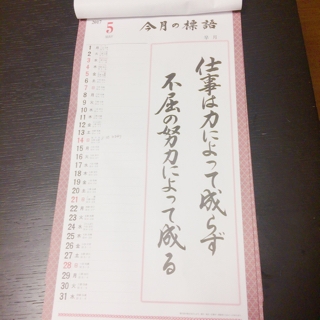 2017
5
今月の標語
仕事は力によって成らず
不屈の努力によって成る
1
2
3
4
5
6
7
8
9
10
11
12
13
14
15
16
17
18
19
20
21
22
23
24
25
26
27
28
29
30
31